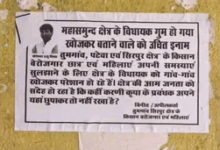 महासमुन्द क्षेत्र के विधायक गुम हो गया
खोजकर बताने वाले को उचित इनाम
तुमगांव, पटेवा एवं सिरपुर क्षेत्र के किसान
बेरोजगार छात्र एवं महिलाएं अपनी समस्याएं
सुलझाने के लिए क्षेत्र के विधायक को गांव-गांव
खोजकर परेशान हो रहे हैं। क्षेत्र की आम जनता को
संदेह हो रहा है कि कहीं करणी कृपा के प्रबंधक अपने
यहां छुपाकर तो नहीं रखा है?
विनीत /
तुमगांव सिरपुर क्षेत्र के
किसान बेरोजगार एवं महिलाएं